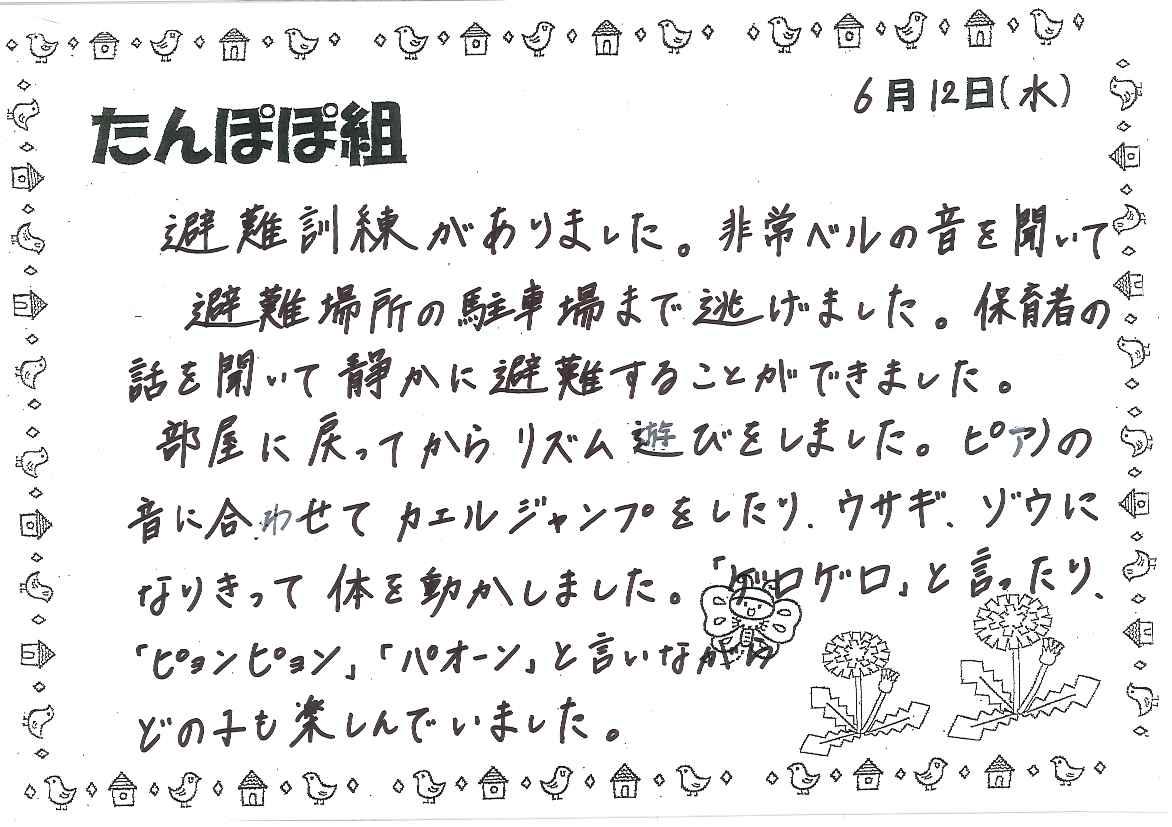 6月12日(水)
たんぽぽ組
避難訓練がありました。非常ベルの音を聞いて
避難場所の駐車場まで逃げました。保育者の
話を聞いて静かに避難することができました。
部屋に戻ってからリズム遊びをしました。ピアノの
音に合わせてカエルジャンプをしたり、ウサギ、ゾウに
なりきって体を動かしました。「ゲロゲロ」と言ったり、
「ピョンピョン」「パオーン」と言いながら
どの子も楽しんでいました。